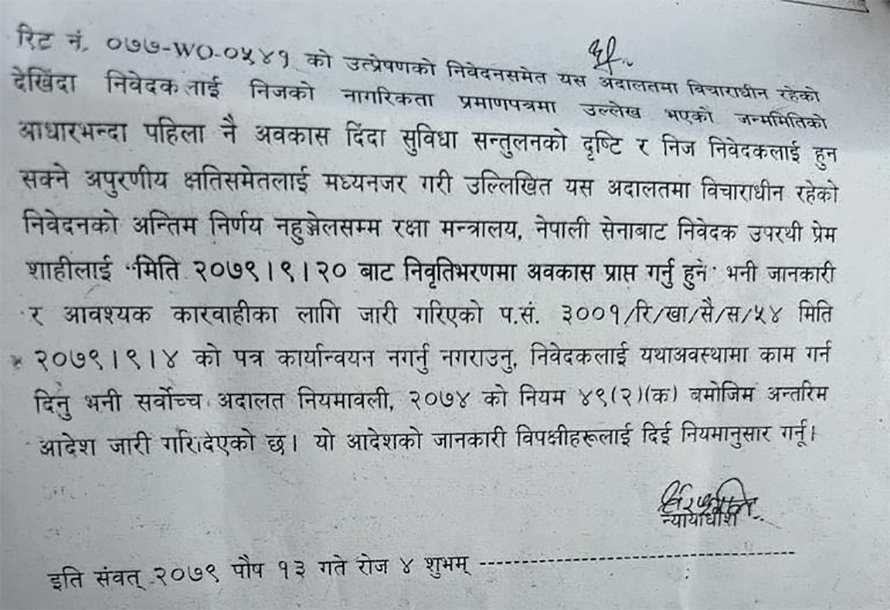 रिट नं. ०७७-WO-०५४१ को उत्प्रेषणको निवेदनसमेत यस अदालतमा विचाराधीन रहेको
देखिंदा निवेदकलाई निजको नागरिकता प्रमाणपत्रमा उल्लेख भएको जन्ममितिको
आधारभन्दा पहिला नै अवकास दिंदा सुविधा सन्तुलनको दृष्टि र निज निवेदकलाई हुन
सक्ने अपुरणीय क्षतिसमेतलाई मध्यनजर गरी उल्लिखित यस अदालतमा विचाराधीन रहेको
निवेदनको अन्तिम निर्णय नहुञ्जेलसम्म रक्षा मन्त्रालय, नेपाली सेनाबाट निवेदक उपरथी प्रेम
शाहीलाई "मिति २०७९।९।२० बाट निवृतिभरणमा अवकास प्राप्त गर्नु हुने" भनी जानकारी
र आवश्यक कारवाहीका लागि जारी गरिएको प.सं. ३००१/रि/खा/सै/स/५४ मिति
२०७९।९।४ को पत्र कार्यान्वयन नगर्नु नगराउनु, निवेदकलाई यथाअवस्थामा काम गर्न
दिनु भनी सर्वोच्च अदालत नियमावली, २०७४ को नियम ४९(२)(क) बमोजिम अन्तरिम
आदेश जारी गरिदिएको छ। यो आदेशको जानकारी विपक्षीहरूलाई दिई नियमानुसार गर्नू।
न्यायाधीश
इति संवत् २०७९ पौष १३ गते रोज ४ शुभम् ----------------------------------------